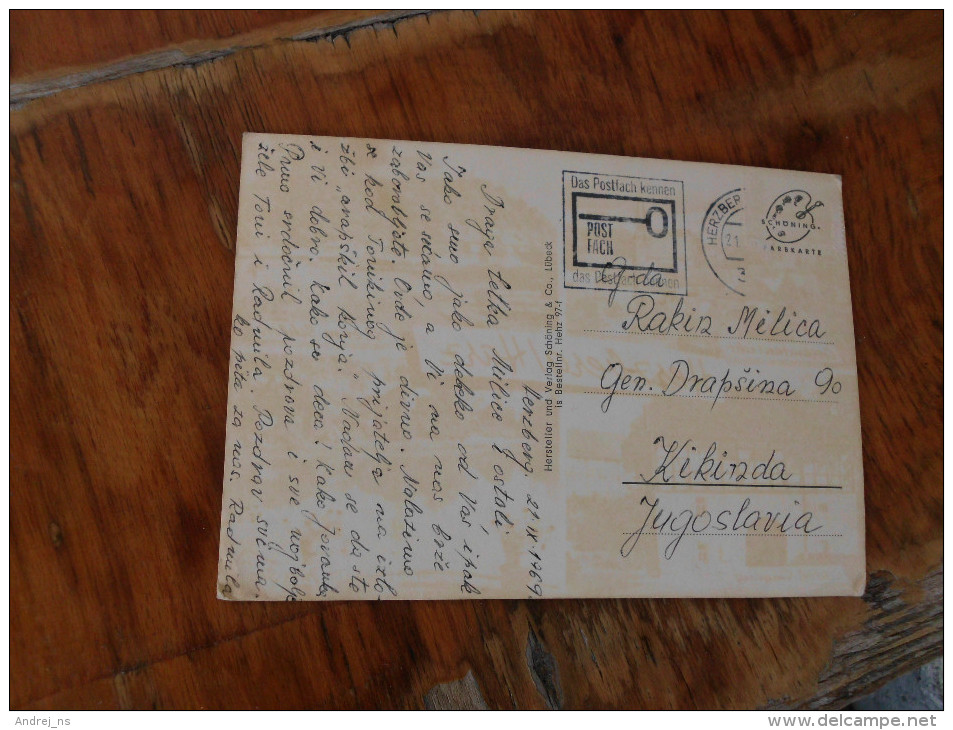 Herzberg. 21 IX 1969.
Draga tetka Milice i ostali
Iako smo jako daleko od Vas ipak
Vas se sećamo, a Vi na nas brže
zaboravljate. Ovde je divno. Nalazimo
se kod Tonikinog prijatelja na izlo-
žbi „arapskih konja." Nadam se da ste
i Vi dobro. Kako su deca? Kako Jovanka
Puno srdačnih pozdrava i sve najbolje
žele Toni i Radmila. Pozdrav svima.
ko pita za nas. Radmila
Hersteller und Verlag Schöning & Co., Lübeck
Bestellnr. Hehz 97
Das Postfach kennen
POST
FACH
das Postfach nennen
HERZBER
21.
SCHÖNING-
FARBKARTE
G-đa
Rakin Milica
Gen. Drapšina 90
Kikinda
Jugoslavia
Andrej_ns
www.delcampe.net